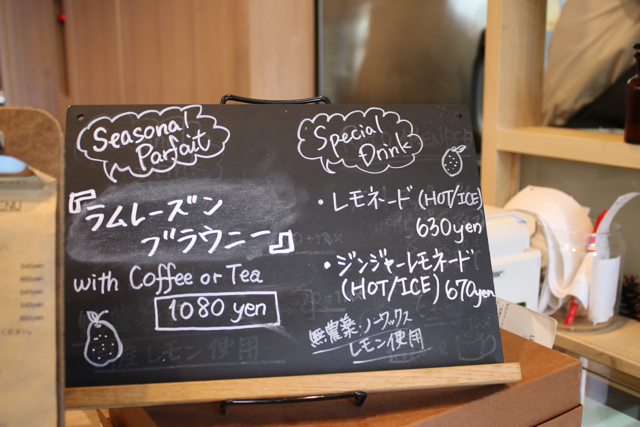 Seasonal
Parfait
『ラムレーズン
ブラウニー』
with Coffee or Tea
1080 yen
Special
Drink
・レモネード (HOT/ICE)
630yen
・ジンジャーレモネード
(HOT/ICE) 670yen
無農薬・ノーワックス
レモン使用
レモン使用